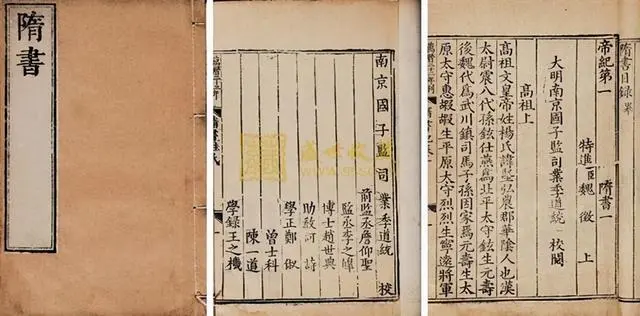 隋書
南京國子監司業季道統 校
前監丞詹仰聖
監丞李之皥
博士趙世典
助教何詩
學正鄭俶
曾士科
陳道
學錄王之機
隋書目錄 畢
帝紀第一 隋書一
特進臣魏徵 上
大明南京國子監司業季道統 校閱
高祖上
高祖文皇帝姓楊氏諱堅弘農郡華陰人也漢
太尉震八代孫鉉仕燕為北平太守鉉生元壽
後魏代為武川鎮司馬子孫因家焉元壽生太
原太守惠嘏嘏生平原太守烈烈生寧遠將軍